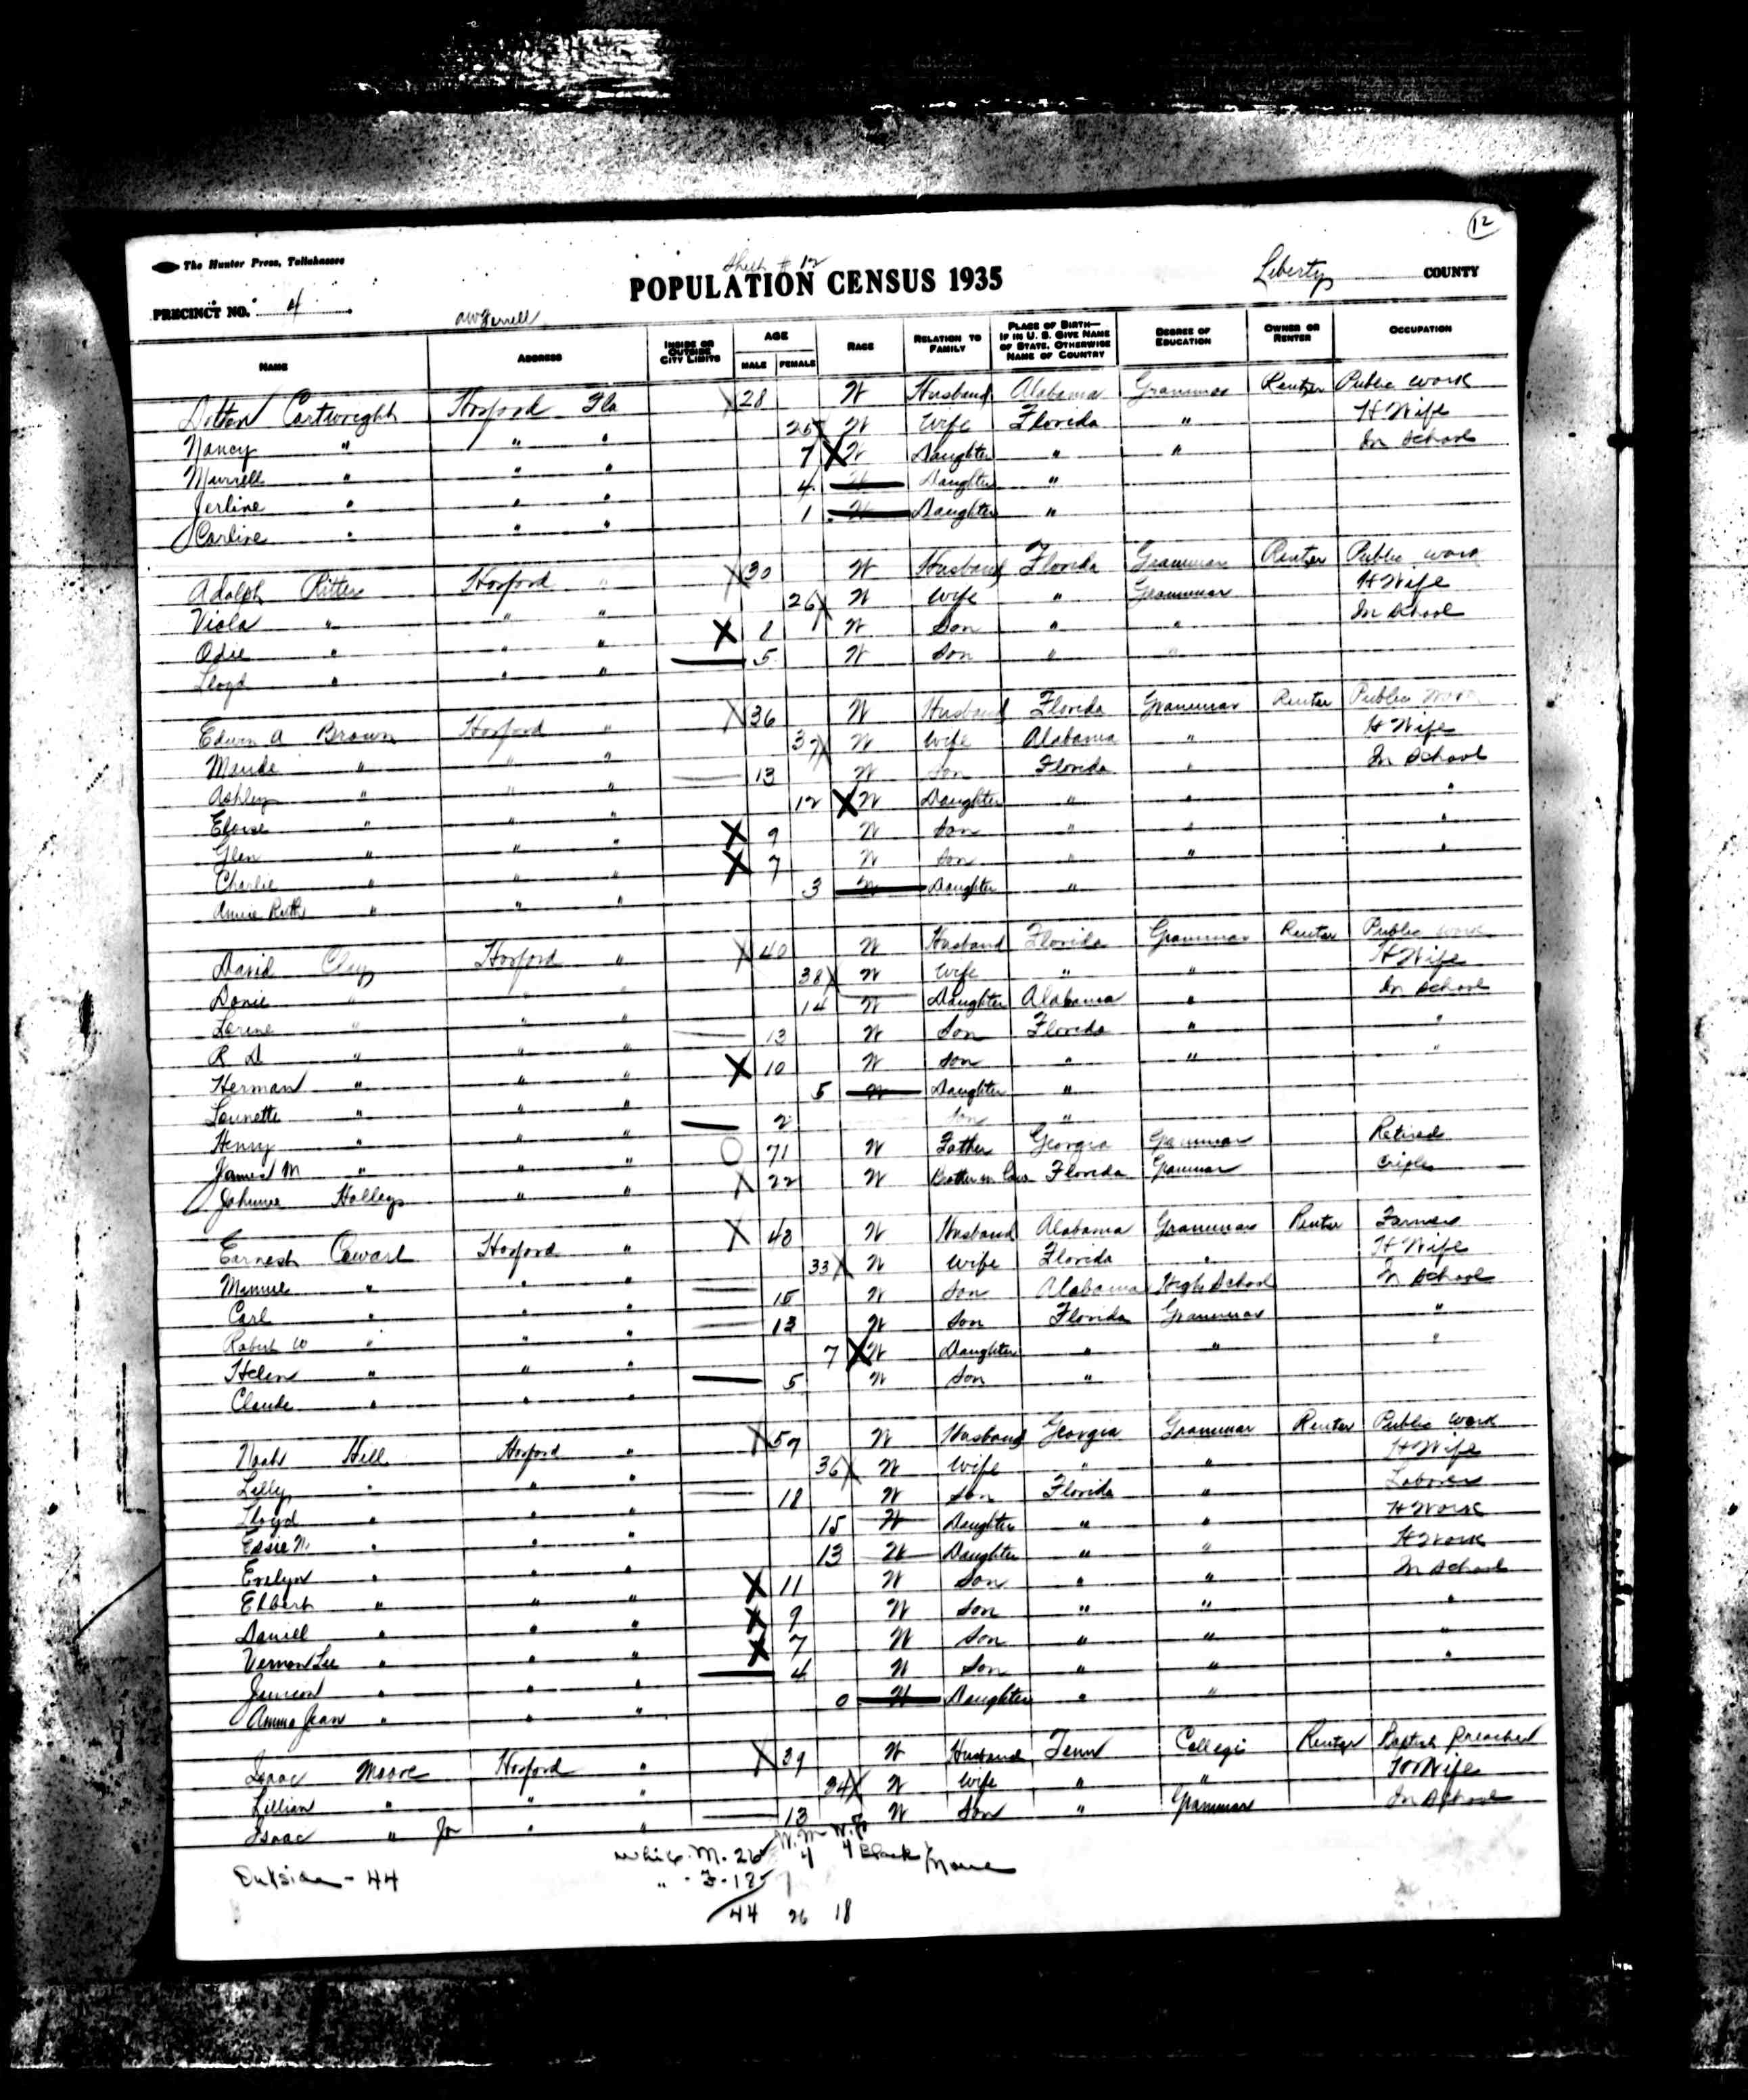 12
The Hunter Press, Tallahassee
Sheet # 12
POPULATION CENSUS 1935
Liberty COUNTY
PRECINCT NO. 4
NAME ADDRESS INSIDE OR OUTSIDE CITY LIMITS AGE MALE FEMALE RACE RELATION TO FAMILY PLACE OF BIRTH— IF IN U. S. GIVE NAME OF STATE. OTHERWISE NAME OF COUNTRY DEGREE OF EDUCATION OWNER OR RENTER OCCUPATION
Cartwright Hosford Fla 28 W Husband Alabama Grammar Renter Public work
Nancy " " " 25 W Wife Florida " H Wife
Murrell " " " 7 W Daughter " " In School
Jerline " " " 4 W Daughter "
Carline " " " 1 W Daughter "
Adolph Ritter Hosford " 30 W Husband Florida Grammar Renter Public work
Viola " " " 26 W Wife " Grammar H Wife
Odie " " " 8 W Son " " In School
Lloyd " " " 5 W Son " "
Edwin A Brown Hosford " 36 W Husband Florida Grammar Renter Public work
Maude " " " 37 W Wife Alabama " H Wife
Ashley " " " 13 W Son Florida " In School
Eloise " " " 12 W Daughter " " "
Glen " " " 9 W Son " " "
Charlie " " " 7 W Son " " "
Annie Ruth " " " 3 W Daughter "
David Clay Hosford " 40 W Husband Florida Grammar Renter Public work
Donie " " " 38 W Wife " " H Wife
Lorine " " " 14 W Daughter Alabama " In School
R D " " " 13 W Son Florida " "
Herman " " " 10 W Son " " "
" " " 5 W Daughter "
Henry " " " 2 Son "
James M " " " 71 W Father Georgia Grammar Retired
Johnnie Holley " " 22 W Brother in Law Florida Grammar Criple
Earnest Cowart Hosford " 43 W Husband Alabama Grammar Renter Farmer
Minnie " " " 33 W Wife Florida " H Wife
Carl " " " 15 W Son Alabama High School In School
Robert W " " " 13 W Son Florida Grammar "
Helen " " " 7 W Daughter " " "
Claude " " " 5 W Son "
Noah Hill Hosford " 59 W Husband Georgia Grammar Renter Public work
Lilly " " " 36 W Wife " " H Wife
Lloyd " " " 18 W Son Florida " Laborer
Essie M. " " " 15 W Daughter " " H Work
Evelyn " " " 13 W Daughter " " H Work
Elbert " " " 11 W Son " " In School
Daniell " " " 9 W Son " " "
Vernon Lee " " " 7 W Son " " "
" " " 4 W Son " " "
Jean " " " 0 W Daughter " "
Isaac Moore Hosford " 39 W Husband Tenn College Renter Baptist Preacher
Lillian " " " 34 W Wife " " H Wife
Isaac " Jr " " 13 W Son " Grammar In School
Outside - 44
White M. 26 W. M 4 W. F 4 Black None
" - F - 18
44 26 18